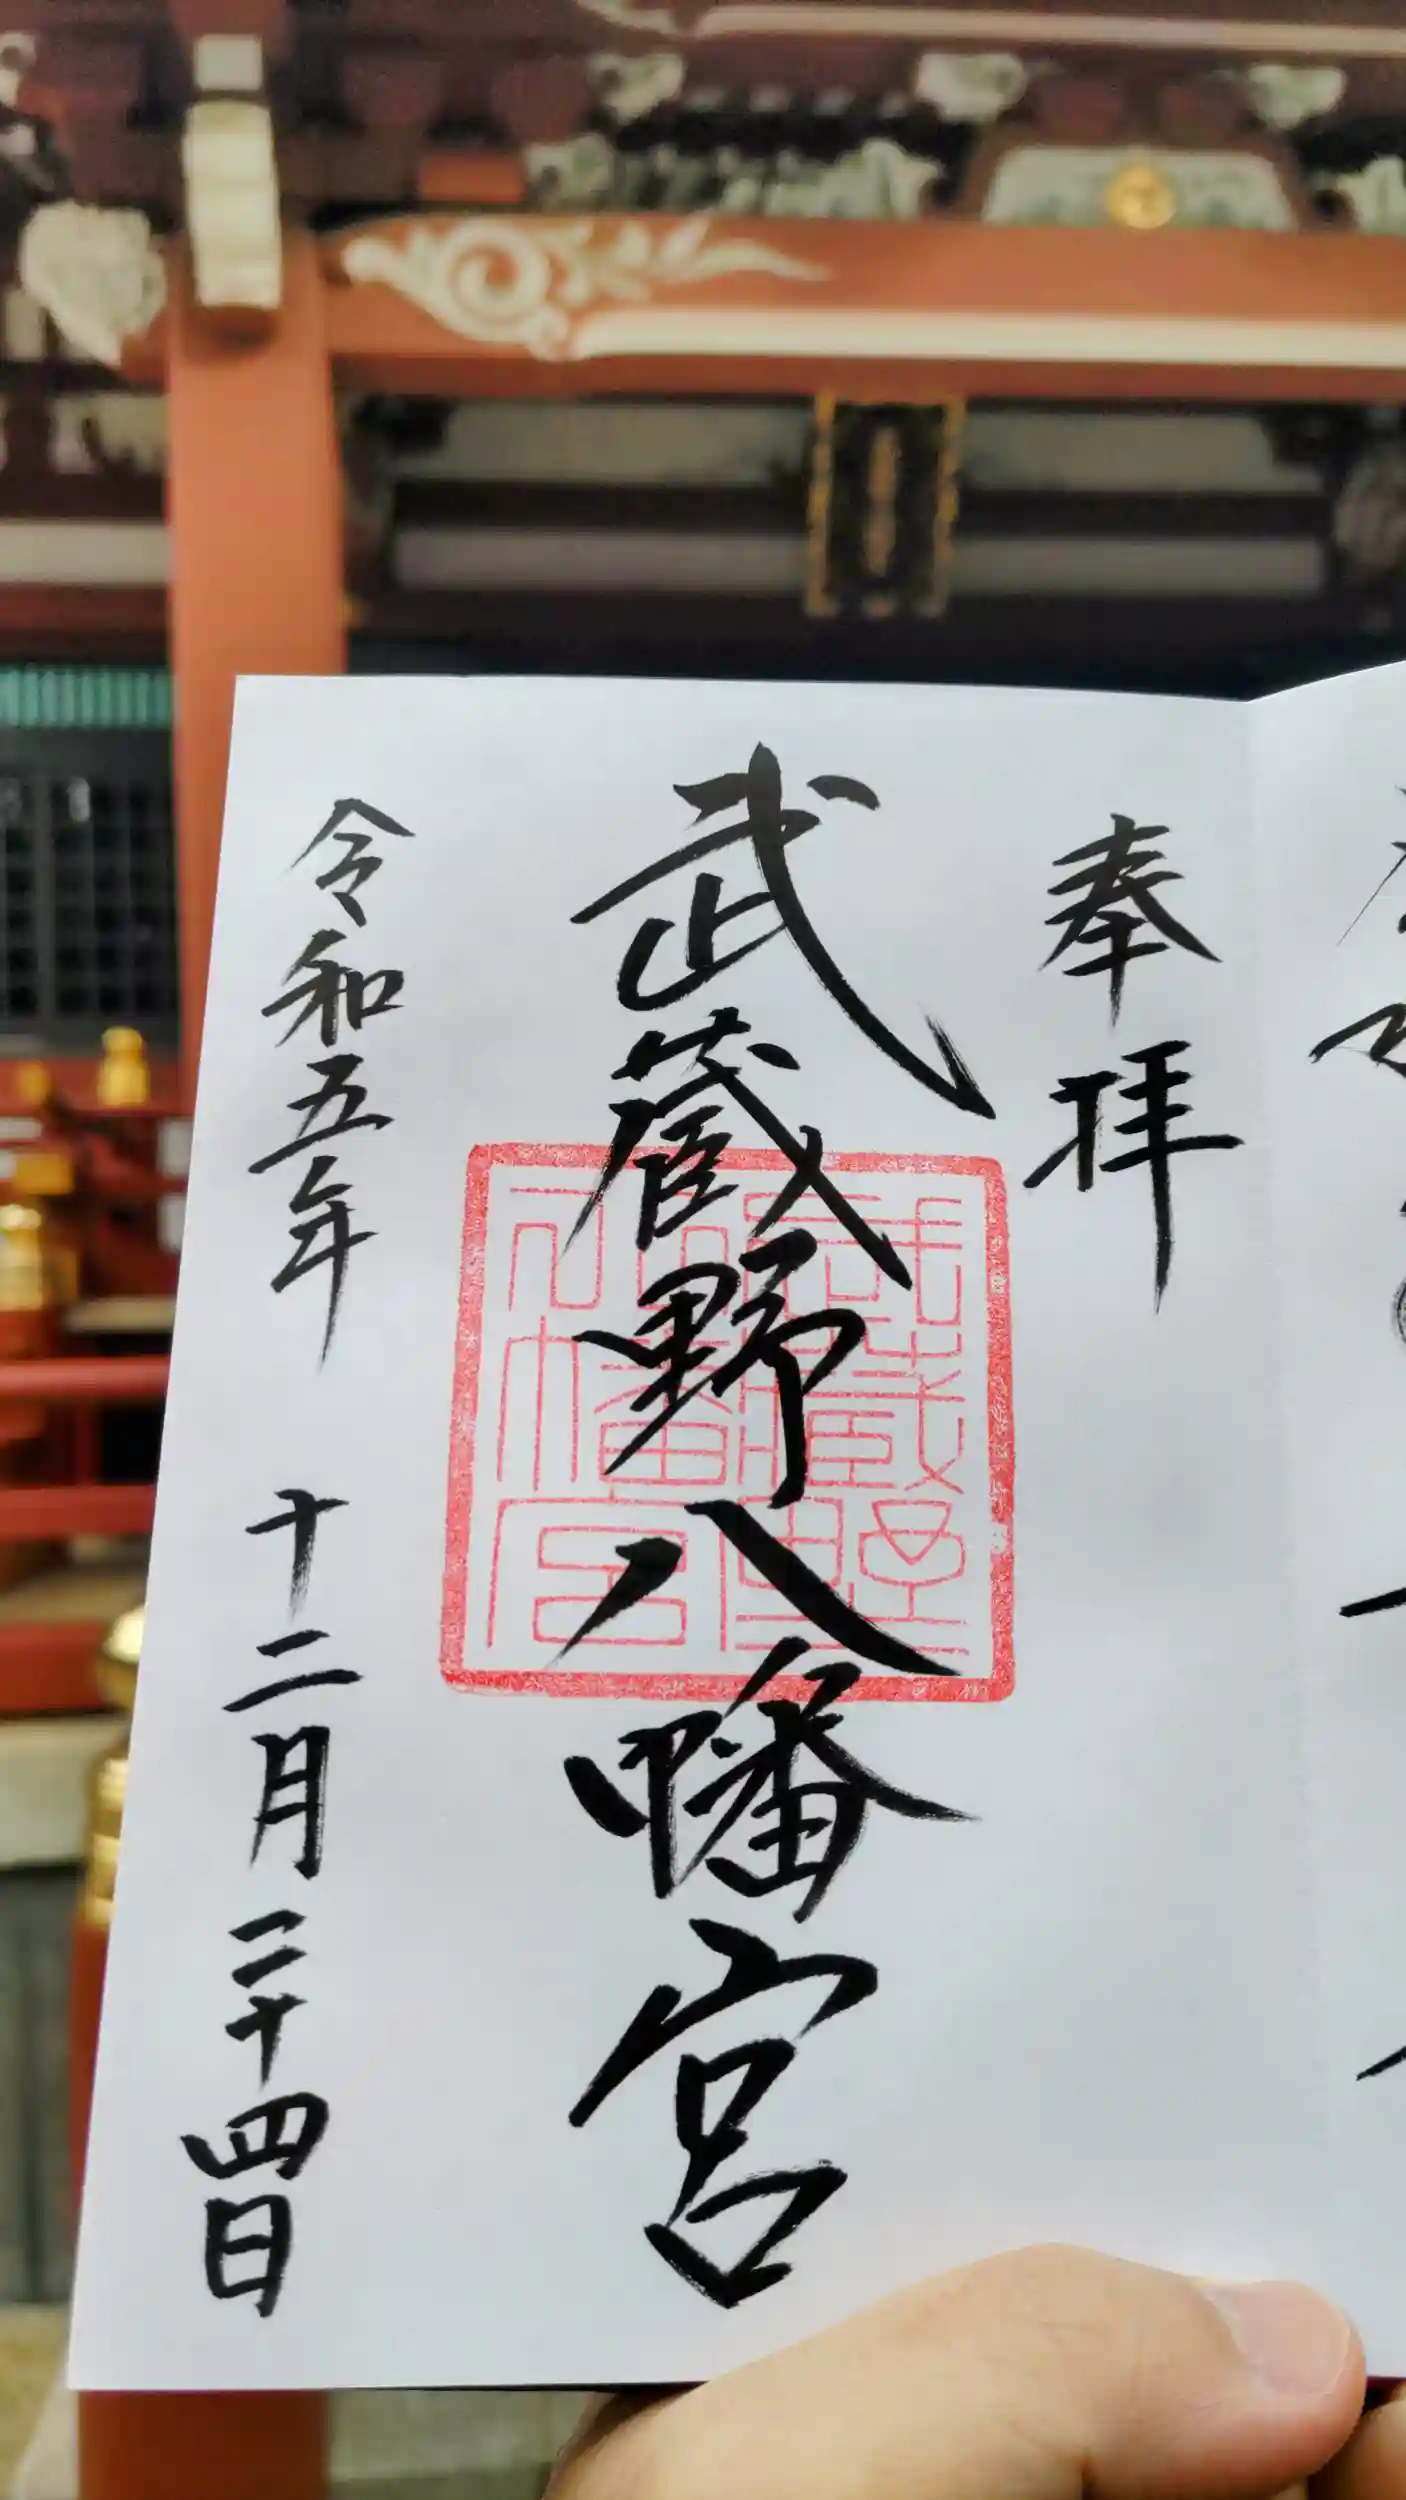 奉拝
武蔵野八幡宮
武蔵野八幡宮
令和五年 十二月二十四日